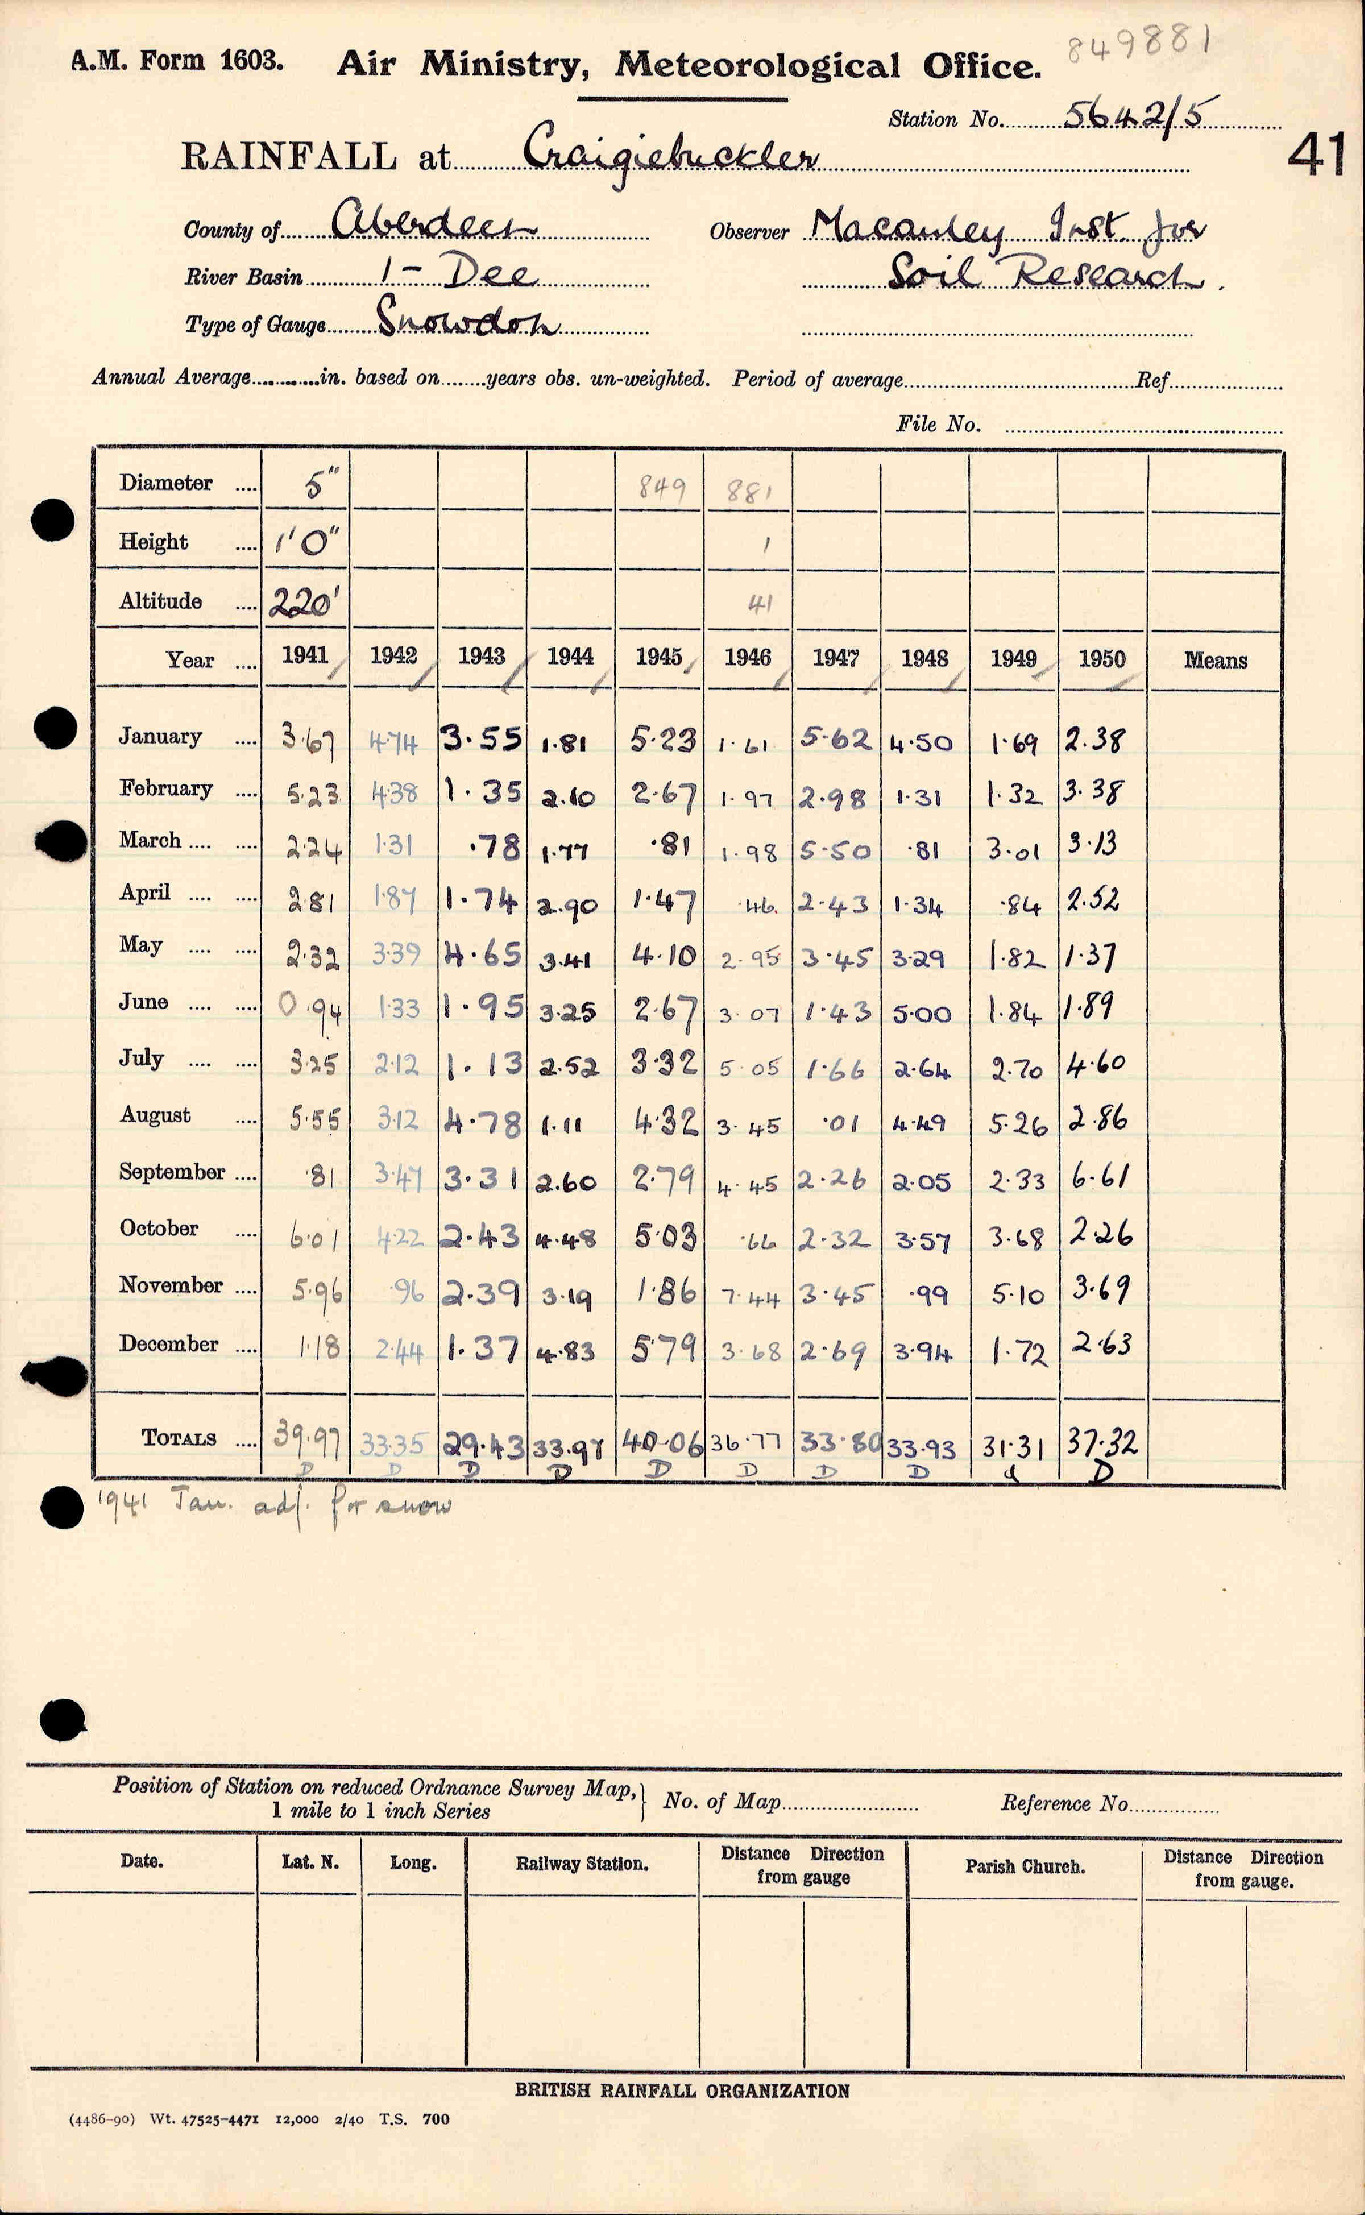 849881
A.M. Form 1603. Air Ministry, Meteorological Office.
Station No. 5642/5
RAINFALL at Craigiebuckler
41
County of Aberdeen Observer Macauley Inst. for
River Basin 1 - Dee Soil Research.
Type of Gauge Snowdon
Annual Average............in. based on........years obs. un-weighted. Period of average.............Ref.............
File No. .............
Diameter .... 5" 849 881
Height .... 1'0" 1
Altitude .... 220' 41
Year .... 1941 1942 1943 1944 1945 1946 1947 1948 1949 1950 Means
January .... 3.67 4.74 3.55 1.81 5.23 1.61 5.62 4.50 1.69 2.38
February .... 5.23 4.38 1.35 2.10 2.67 1.97 2.98 1.31 1.32 3.38
March .... .... 2.24 1.31 .78 1.77 .81 1.98 5.50 .81 3.01 3.13
April .... .... 2.81 1.87 1.74 2.90 1.47 .46 2.43 1.34 .84 2.52
May .... .... 2.32 3.39 4.65 3.41 4.10 2.95 3.45 3.29 1.82 1.37
June .... .... 0.94 1.33 1.95 3.25 2.67 3.07 1.43 5.00 1.84 1.89
July .... .... 3.25 2.12 1.13 2.52 3.32 5.05 1.66 2.64 2.70 4.60
August .... 5.55 3.12 4.78 1.11 4.32 3.45 .01 4.49 5.26 2.86
September .... .81 3.47 3.31 2.60 2.79 4.45 2.26 2.05 2.33 6.61
October .... 6.01 4.22 2.43 4.48 5.03 .66 2.32 3.57 3.68 2.26
November .... 5.96 .96 2.39 3.19 1.86 7.44 3.45 .99 5.10 3.69
December .... 1.18 2.44 1.37 4.83 5.79 3.68 2.69 3.94 1.72 2.63
TOTALS .... 39.97 33.35 29.43 33.97 40.06 36.77 33.80 33.93 31.31 37.32
D D D D D D D D d D
1941 Jan. adj. for snow
Position of Station on reduced Ordnance Survey Map, 1 mile to 1 inch Series } No. of Map............ Reference No............
Date. Lat. N. Long. Railway Station. Distance Direction from gauge Parish Church. Distance Direction from gauge.
BRITISH RAINFALL ORGANIZATION
(4486-90) Wt. 47525-4471 12,000 2/40 T.S. 700